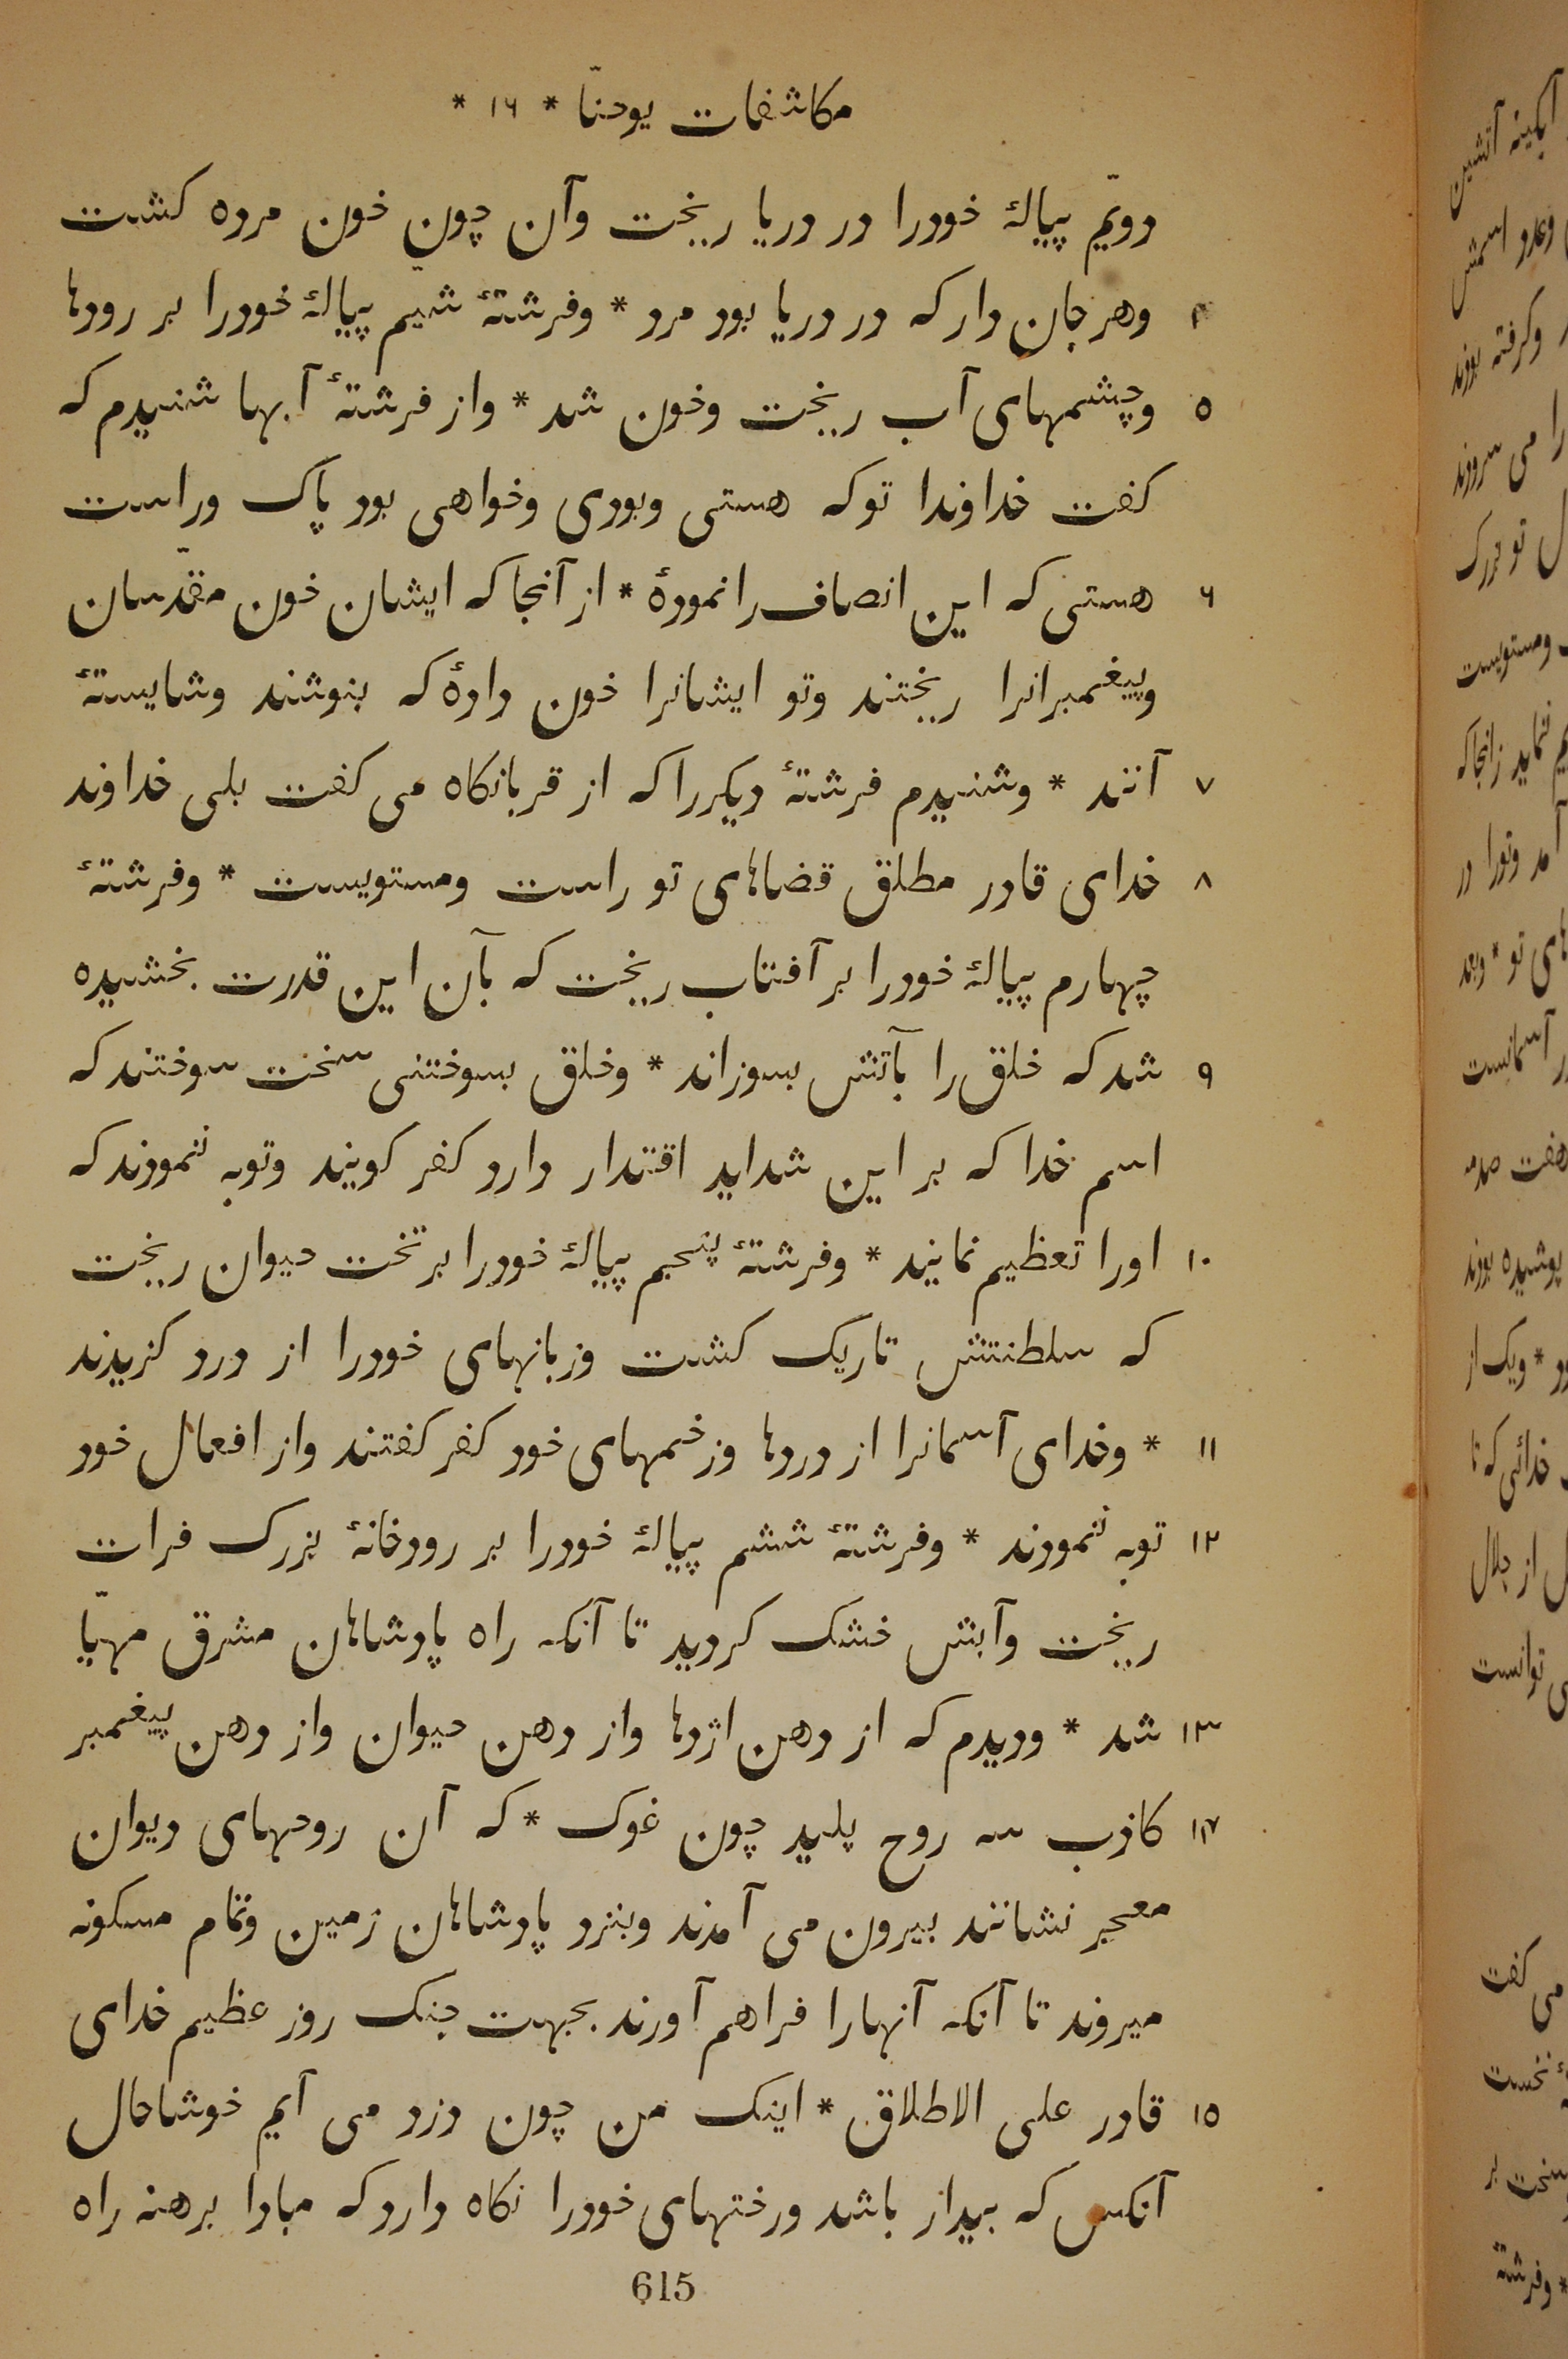 مکاشفات یوحنّا * ۱۶ *
دویّم پیالهٔ خودرا در دریا ریخت وآن چون خون مرده کشت
۴ وهر جان دار که در دریا بود مرد * وفرشتهٔ سّیم پیالهٔ خودرا بر رودها
۵ وچشمهای آب ریخت وخون شد * واز فرشتهٔ آبها شنیدم که
کفت خداوندا تو که هستی وبودی وخواهی بود پاک وراست
۶ هستی که این انصاف را نمودهٔ * از آنجا که ایشان خون مقدّسان
وپیغمبرانرا ریختند وتو ایشانرا خون دادهٔ که بنوشند وشایستهٔ
۷ آنند * وشنیدم فرشتهٔ دیکررا که از قربانکاه می کفت بلی خداوند
۸ خدای قادر مطلق قضاهای تو راست ومستویست * وفرشتهٔ
چهارم پیالهٔ خودرا بر آفتاب ریخت که بآن این قدرت بخشیده
۹ شد که خلق را بآتش بسوزاند * وخلق بسوختنی سخت سوختند که
اسم خدا که بر این شداید اقتدار دارد کفر کویند وتوبه ننمودند که
۱۰ اورا تعظیم نمایند * وفرشتهٔ پنجم پیالهٔ خودرا بر تخت حیوان ریخت
که سلطنتش تاریک کشت وزبانهای خودرا از درد کزیدند
۱۱ * وخدای آسمانرا از دردها وزخمهای خود کفر کفتند واز افعال خود
۱۲ توبه ننمودند * وفرشتهٔ ششم پیالهٔ خودرا بر رودخانهٔ بزرک فرات
ریخت وآبش خشک کردید تا آنکه راه پادشاهان مشرق مهیّا
۱۳ شد * ودیدم که از دهن اژدها واز دهن حیوان واز دهن پیغمبر
۱۴ کاذب سه روح پلید چون غوک * که آن روحهای دیوان
معجر نشانند بیرون می آمدند وبنزد پادشاهان زمین وتمام مسکونه
میروند تا آنکه آنهارا فراهم آورند بجهت جنک روز عظیم خدای
۱۵ قادر علی الاطلاق * اینک من چون دزد می آیم خوشاحال
آنکس که بیدار باشد ورختهای خودرا نکاه دارد که مبادا برهنه راه
615